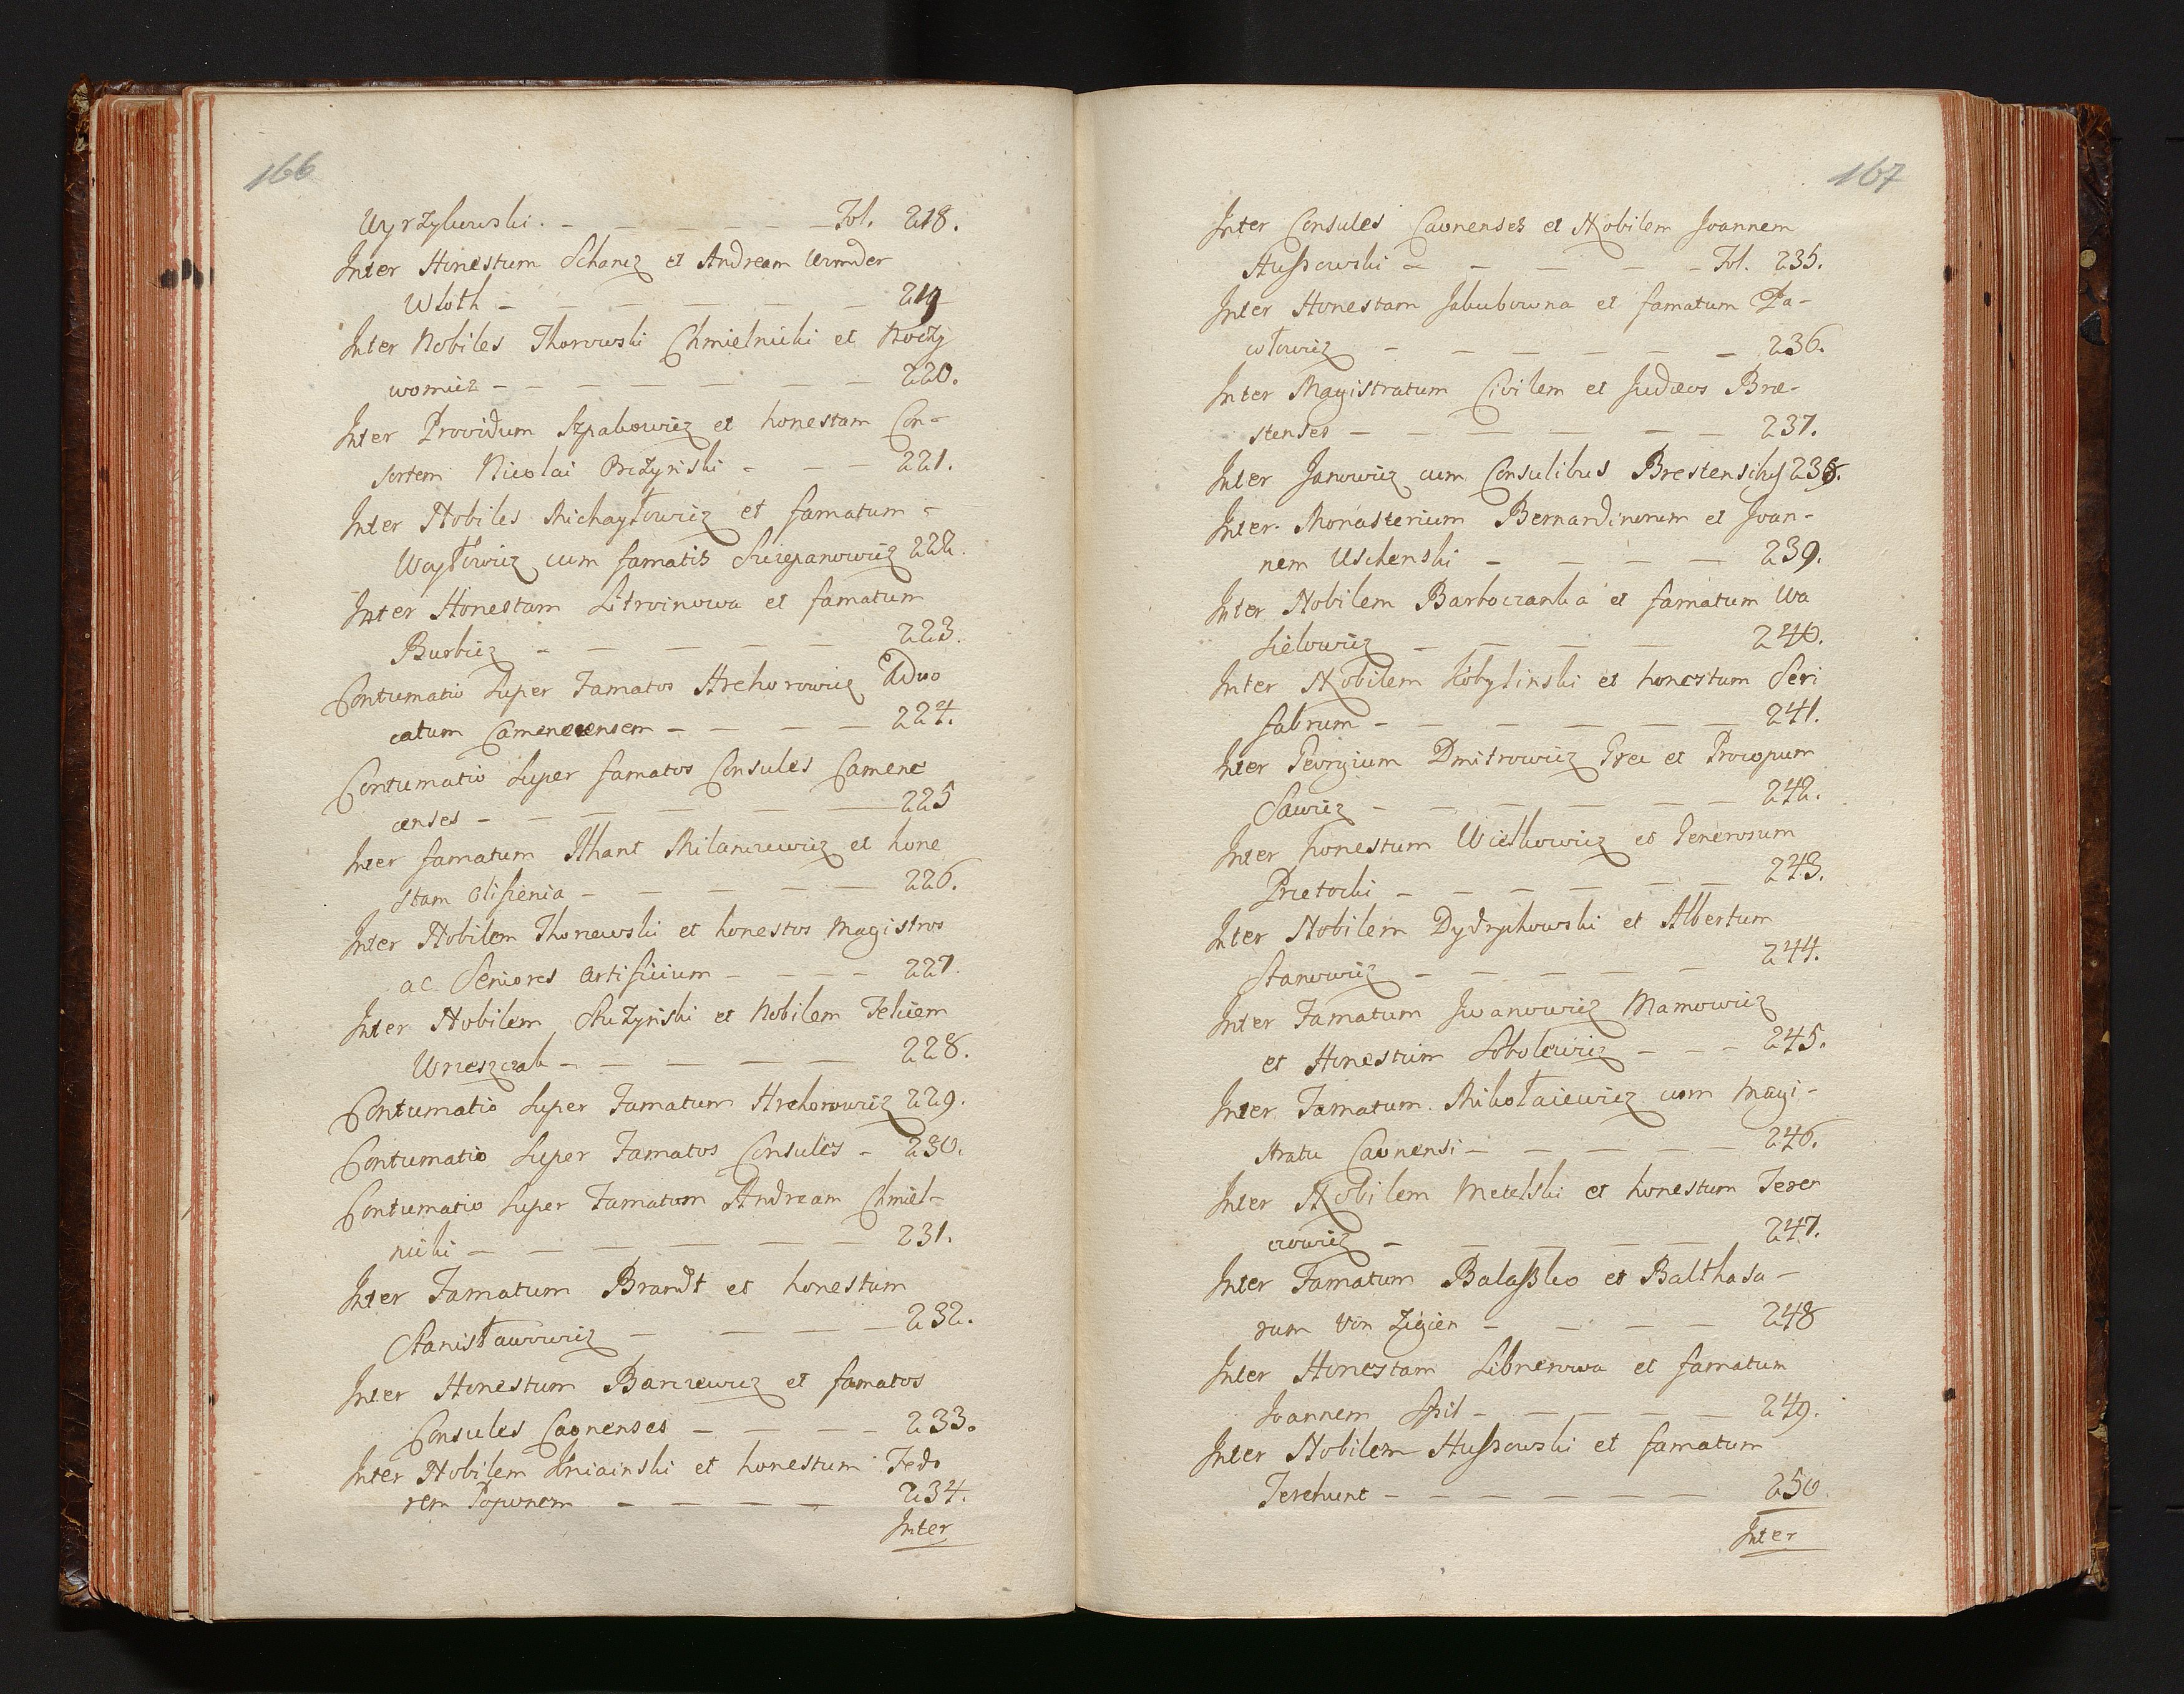 166
Wyrzykowski. - - - - - - Fol. 218.
Inter Honestum Schancz et Andream Wonder
Wloth - - - - - - 219
Inter Nobiles Thorowski Chmielnicki et Koczy
womicz - - - - - - - 220.
Inter Providum Szpakowicz et honestam Con-
sortem Nicolai Brzzynski - - - 221.
Inter Nobiles Michayłowicz et famatum -
Woytowicz cum famatis Szczepanowicz 222.
Inter Honestam Litwinowa et famatum
Burbicz - - - - - - 223.
Contumatio Super Famatos Hrehorowicz Advo
catum Camenecensem - - - - 224.
Contumatio Super famatos Consules Camene
censes - - - - - - 225
Inter famatum Ithant Milanczewicz et hone
stam Olisienia - - - - - 226.
Inter Nobilem Thorzewski et honestos Magistros
ac Seniores artificium - - - - 227.
Inter Nobilem Skuzynski et Nobilem Felicem
Wrzeszczak - - - - - 228.
Contumatio Super Famatum Hrehorowicz 229.
Contumatio Super Famatos Consules - 230.
Contumatio Super Famatum Andream Chmiel-
nicki - - - - - - - 231.
Inter Famatum Brandt et honestum
Stanisławowicz - - - - 232.
Inter Honestum Banczewicz et famatos
Consules Caonenses - - - - 233.
Inter Nobilem Kniainski et honestum Fedo
rem Poponem - - - - - 234.
Inter
167
Inter Consules Caonenses et Nobilem Joannem
Hussowski - - - - - - Fol. 235.
Inter Honestam Jakubowna et famatum Pa-
włowicz - - - - - - - 236.
Inter Magistratum Civilem et Judaeos Bre-
stenses - - - - - - - 237.
Inter Janowicz cum Consulibus Brestensibus 238.
Inter Monasterium Bernardinorum et Joan-
nem Uschenski - - - - 239.
Inter Nobilem Bartoczanka et famatum Wa
silewicz - - - - - 240.
Inter Nobilem Kobylinski et honestum Seri
fabrum - - - - - - - 241.
Inter Georgium Dmitrowicz Gree et Procopum
Sawicz - - - - - - - 242.
Inter honestum Wietkowicz et Generosum
Przetocki - - - - - - 243.
Inter Nobilem Dydrychowski et Albertum
Stanowicz - - - - - 244.
Inter Famatum Jwanowicz Mamowicz
et Honestum Sobolewicz - - - 245.
Inter Famatum Mikołaiewicz cum Magi-
stratu Caonensi - - - - - 246.
Inter Nobilem Metelski et honestum Feren
cowicz - - - - - - 247.
Inter Famatum Balassko et Balthasa-
rum von Zigien - - - - 248
Inter Honestam Libnerowa et famatum
Joannem Spil - - - - - 249.
Inter Nobilem Hussowski et famatum
Terehunt - - - - - - - 250
Inter